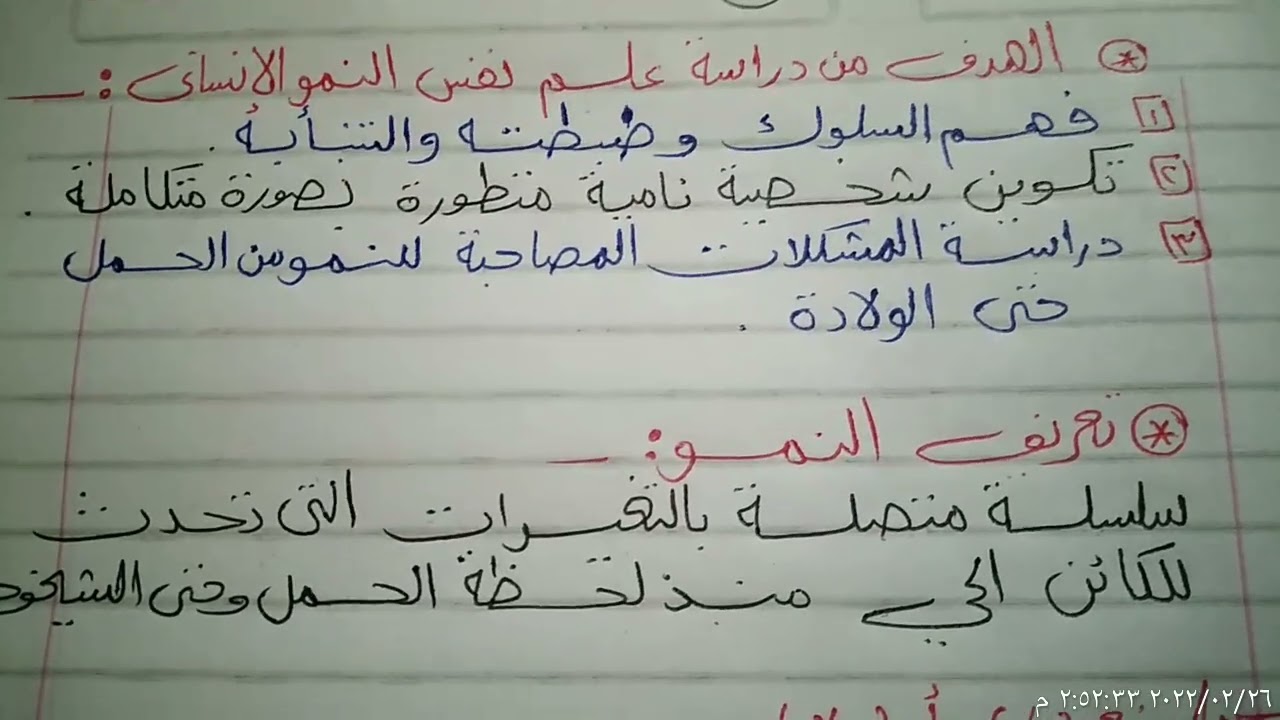 * الهدف من دراسة علم نفس النمو الانسانى :ـ
١ فهم السلوك وضبطته والتنبأ به .
٢ تكوين شخصية نامية متطورة بصورة متكاملة .
٣ دراسة المشكلات المصاحبة للنمو من الحمل
حتى الولادة .
* تعريف النمو :ـ
سلسلة متصلة بالتغيرات التى تحدث
للكائن الحي منذ لحظة الحمل وحتى الشيخوخ
٢٠٢٢/٠٢/٢٦ ٢:٥٢:٣٣ م